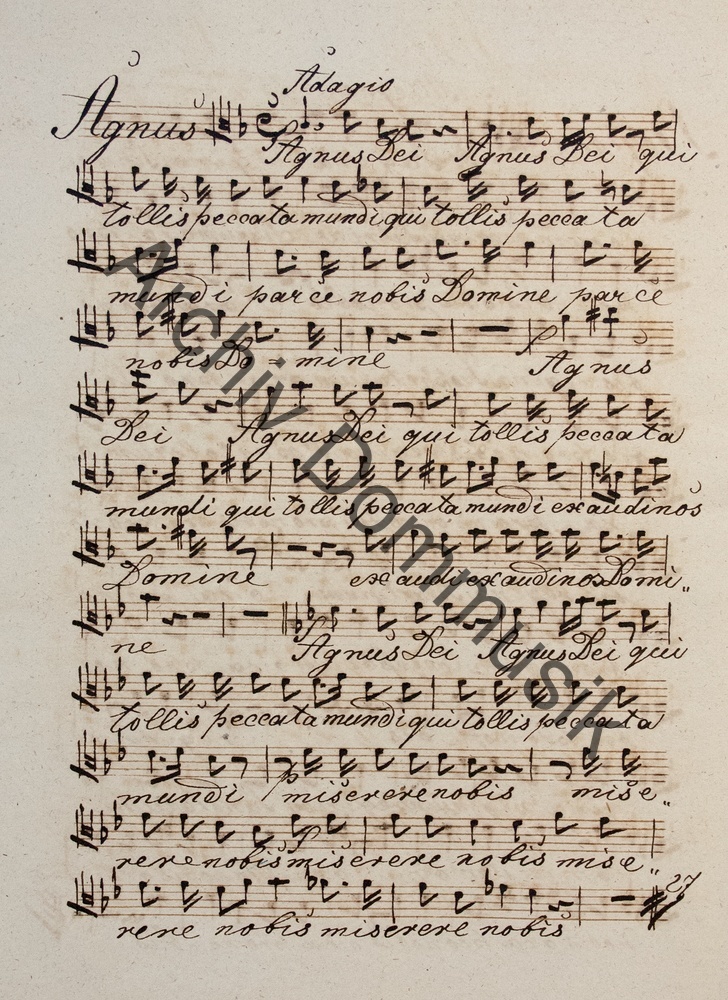 Adagio
Agnus
Agnus Dei Agnus Dei qui
tollis peccata mundi qui tollis peccata
mundi parce nobis Domine parce
nobis Do = mine Agnus
Dei Agnus Dei qui tollis peccata
mundi qui tollis peccata mundi exaudi nos
Domine exaudi exaudi nos Domi„
ne Agnus Dei Agnus Dei qui
tollis peccata mundi qui tollis peccata
mundi miserere nobis mise„
rere nobis miserere nobis mise„
27
rere nobis miserere nobis
Archiv Dommusik